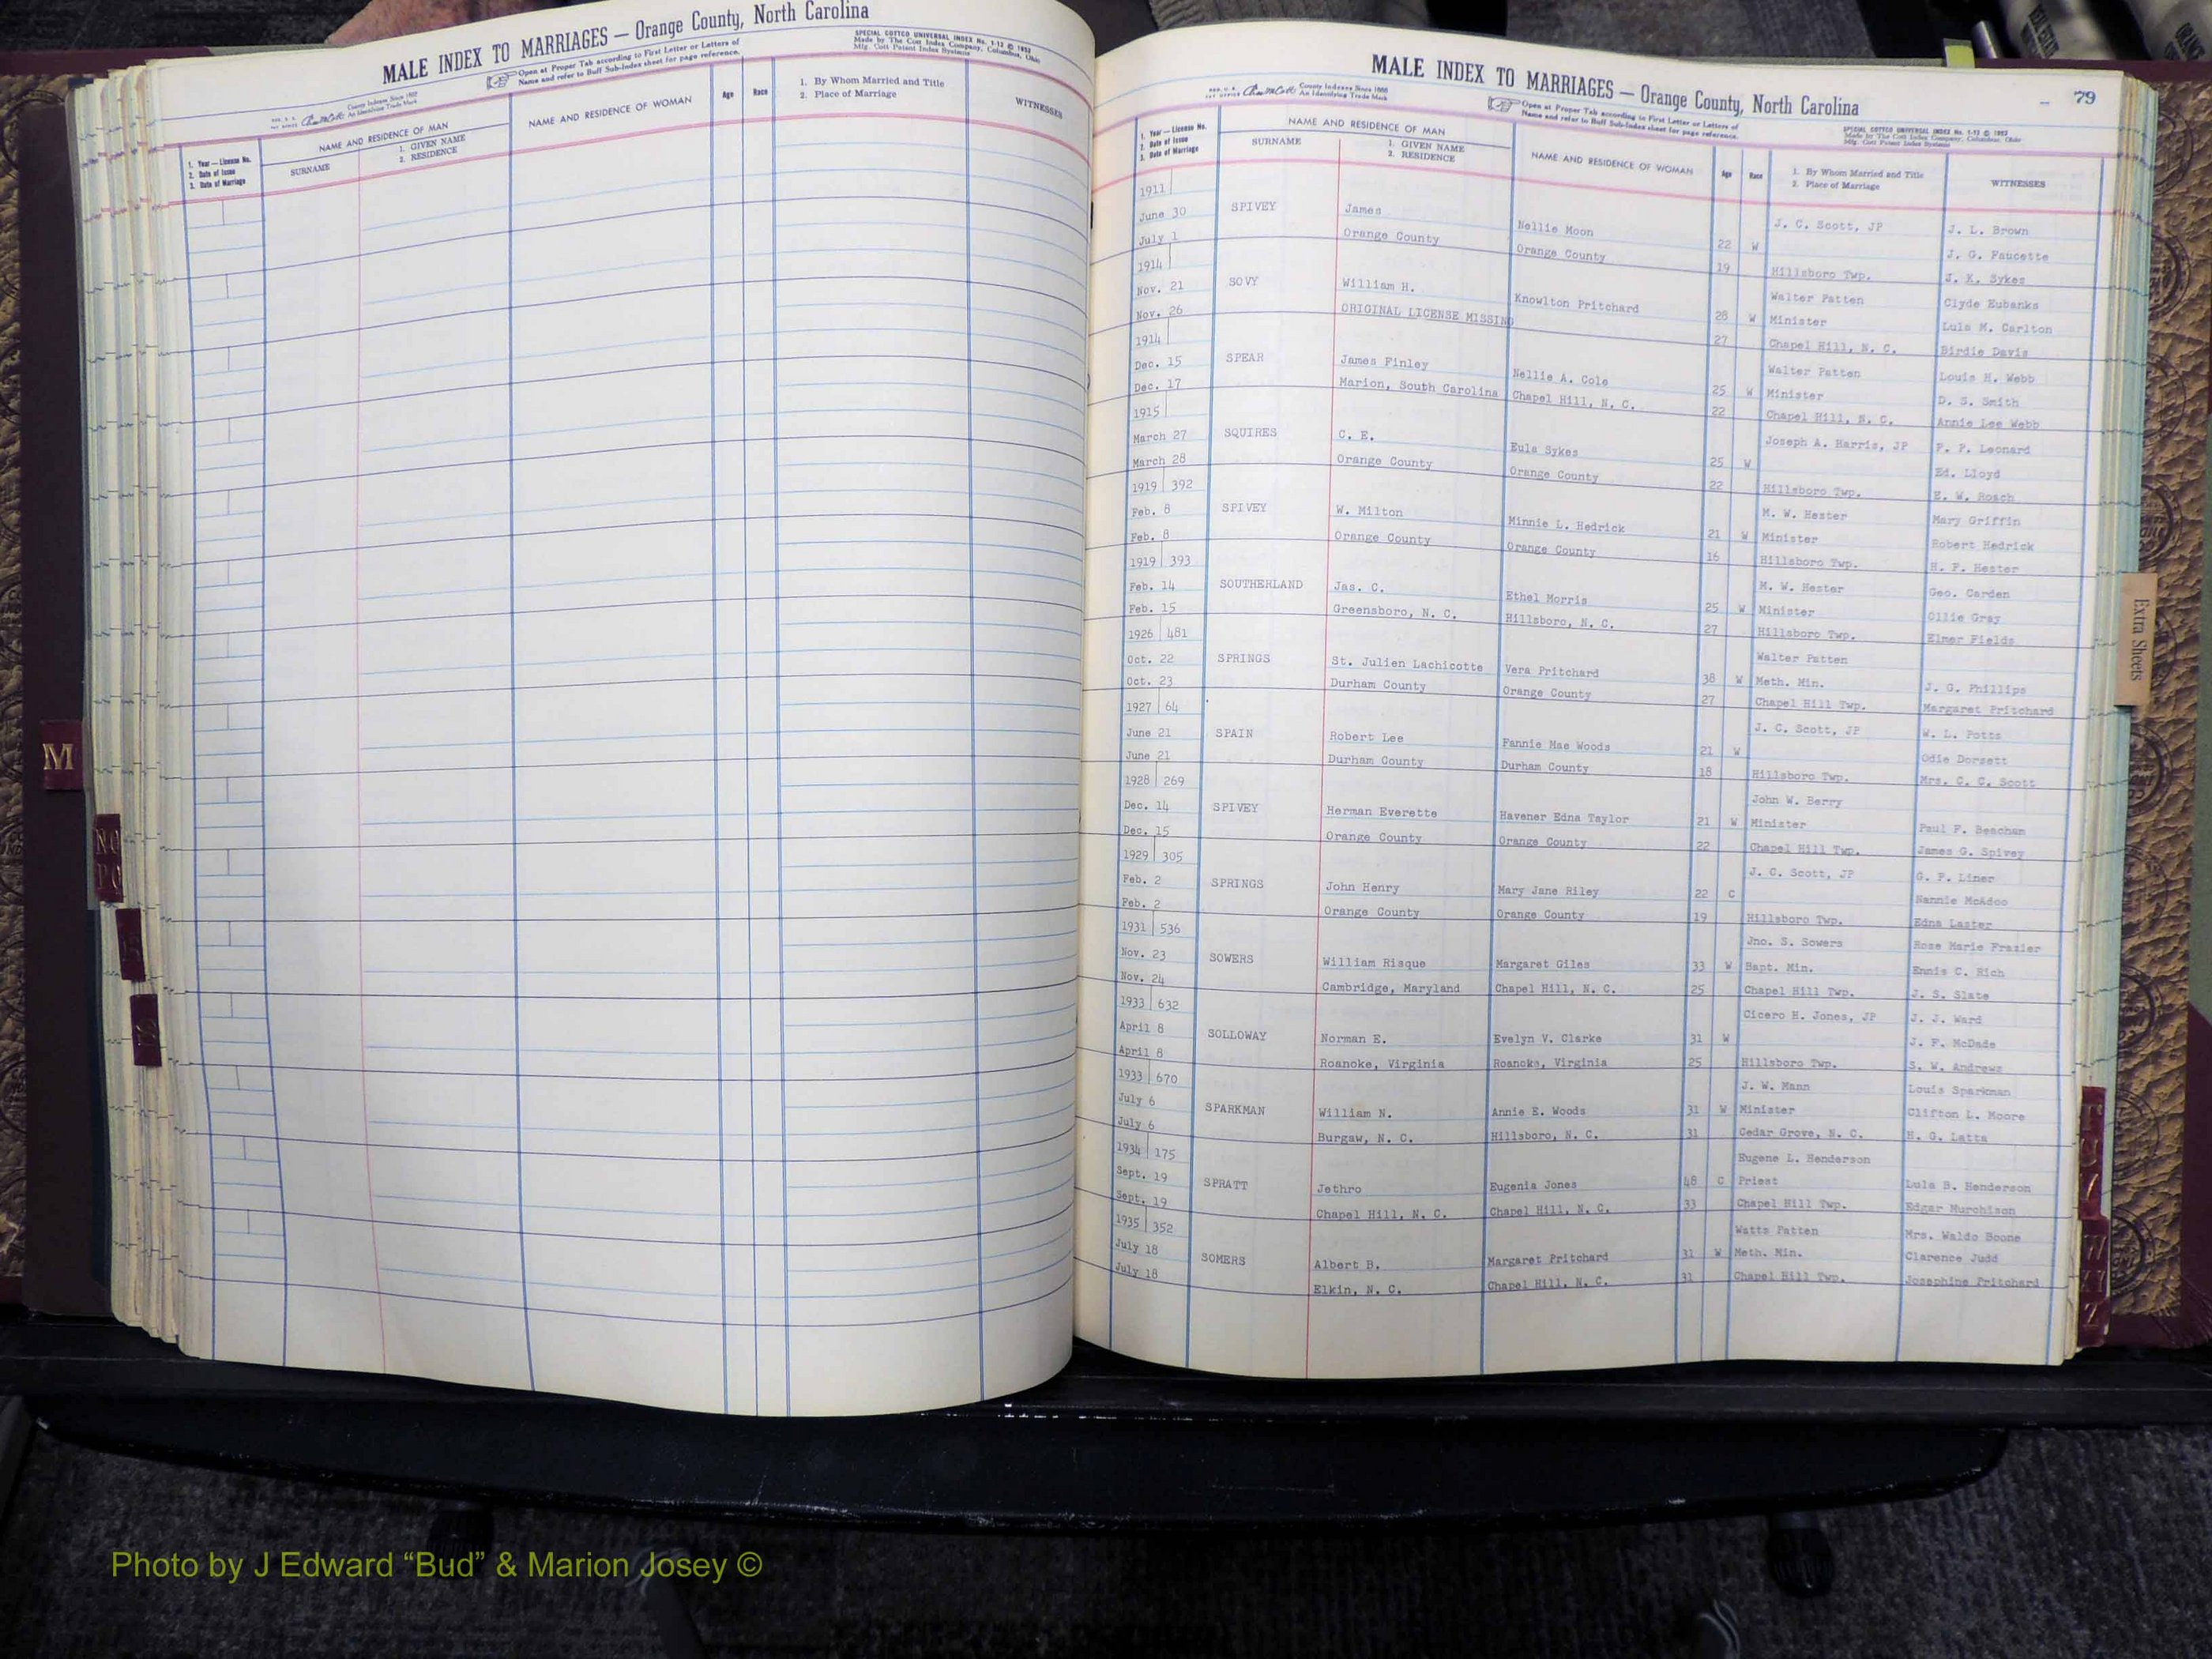 MALE INDEX TO MARRIAGES — Orange County, North Carolina
Open at Proper Tab according to First Letter or Letters of
Name and refer to Buff Sub-Index sheet for page reference.
SPECIAL COTTCO UNIVERSAL INDEX No. 1-12 © 1953
Made by The Cott Index Company, Columbus, Ohio
Mfg. Cott Patent Index Systems
1. Year — License No.
2. Date of Issue
3. Date of Marriage
NAME AND RESIDENCE OF MAN
SURNAME
1. GIVEN NAME
2. RESIDENCE
NAME AND RESIDENCE OF WOMAN
Age
Race
1. By Whom Married and Title
2. Place of Marriage
WITNESSES
MALE INDEX TO MARRIAGES — Orange County, North Carolina
79
Open at Proper Tab according to First Letter or Letters of
Name and refer to Buff Sub-Index sheet for page reference.
SPECIAL COTTCO UNIVERSAL INDEX No. 1-12 © 1953
Made by The Cott Index Company, Columbus, Ohio
Mfg. Cott Patent Index Systems
1. Year — License No.
2. Date of Issue
3. Date of Marriage
NAME AND RESIDENCE OF MAN
SURNAME
1. GIVEN NAME
2. RESIDENCE
NAME AND RESIDENCE OF WOMAN
Age
Race
1. By Whom Married and Title
2. Place of Marriage
WITNESSES
1911 J. C. Scott, JP J. L. Brown
June 30 SPIVEY James Nellie Moon 22 W J. G. Faucette
July 1 Orange County Orange County 19 Hillsboro Twp. J. K. Sykes
1914 Walter Patten Clyde Eubanks
Nov. 21 SOVY William H. Knowlton Pritchard 28 W Minister Lula M. Carlton
Nov. 26 ORIGINAL LICENSE MISSING 27 Chapel Hill, N. C. Birdie Davis
1914 Walter Patten Louis H. Webb
Dec. 15 SPEAR James Finley Nellie A. Cole 25 W Minister D. S. Smith
Dec. 17 Marion, South Carolina Chapel Hill, N. C. 22 Chapel Hill, N. C. Annie Lee Webb
1915 Joseph A. Harris, JP P. P. Leonard
March 27 SQUIRES C. E. Eula Sykes 25 W Ed. Lloyd
March 28 Orange County Orange County 22 Hillsboro Twp. E. W. Roach
1919 392 M. W. Hester Mary Griffin
Feb. 8 SPIVEY W. Milton Minnie L. Hedrick 21 W Minister Robert Hedrick
Feb. 8 Orange County Orange County 16 Hillsboro Twp. H. P. Hester
1919 393 M. W. Hester Geo. Carden
Feb. 14 SOUTHERLAND Jas. C. Ethel Morris 25 W Minister Ollie Gray
Feb. 15 Greensboro, N. C. Hillsboro, N. C. 27 Hillsboro Twp. Elmer Fields
1926 481 Walter Patten
Oct. 22 SPRINGS St. Julien Lachicotte Vera Pritchard 38 W Meth. Min. J. G. Phillips
Oct. 23 Durham County Orange County 27 Chapel Hill Twp. Margaret Pritchard
1927 64 J. C. Scott, JP W. L. Potts
June 21 SPAIN Robert Lee Fannie Mae Woods 21 W Odie Dorsett
June 21 Durham County Durham County 18 Hillsboro Twp. Mrs. C. C. Scott
1928 269 John W. Berry
Dec. 14 SPIVEY Herman Everette Havener Edna Taylor 21 W Minister Paul F. Beacham
Dec. 15 Orange County Orange County 22 Chapel Hill Twp. James G. Spivey
1929 305 J. C. Scott, JP G. P. Liner
Feb. 2 SPRINGS John Henry Mary Jane Riley 22 C Nannie McAdoo
Feb. 2 Orange County Orange County 19 Hillsboro Twp. Edna Laster
1931 536 Jno. S. Sowers Rose Marie Frazier
Nov. 23 SOWERS William Risque Margaret Giles 33 W Bapt. Min. Ennis C. Rich
Nov. 24 Cambridge, Maryland Chapel Hill, N. C. 25 Chapel Hill Twp. J. S. Slate
1933 632 Cicero H. Jones, JP J. J. Ward
April 8 SOLLOWAY Norman E. Evelyn V. Clarke 31 W J. F. McDade
April 8 Roanoke, Virginia Roanoke, Virginia 25 Hillsboro Twp. S. W. Andrews
1933 670 J. W. Mann Louis Sparkman
July 6 SPARKMAN William N. Annie E. Woods 31 W Minister Clifton L. Moore
July 6 Burgaw, N. C. Hillsboro, N. C. 31 Cedar Grove, N. C. H. G. Latta
1934 175 Eugene L. Henderson
Sept. 19 SPRATT Jethro Eugenia Jones 48 C Priest Lula B. Henderson
Sept. 19 Chapel Hill, N. C. Chapel Hill, N. C. 33 Chapel Hill Twp. Edgar Murchison
1935 352 Watts Patten Mrs. Waldo Boone
July 18 SOMERS Albert B. Margaret Pritchard 31 W Meth. Min. Clarence Judd
July 18 Elkin, N. C. Chapel Hill, N. C. 31 Chapel Hill Twp. Josephine Pritchard
Extra Sheets
M
Photo by J Edward “Bud” & Marion Josey ©